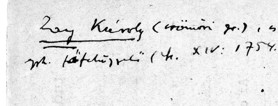 Zay Károly (csömöri gr.), a
ph. főfelügyelő (k. XIV. 1754.